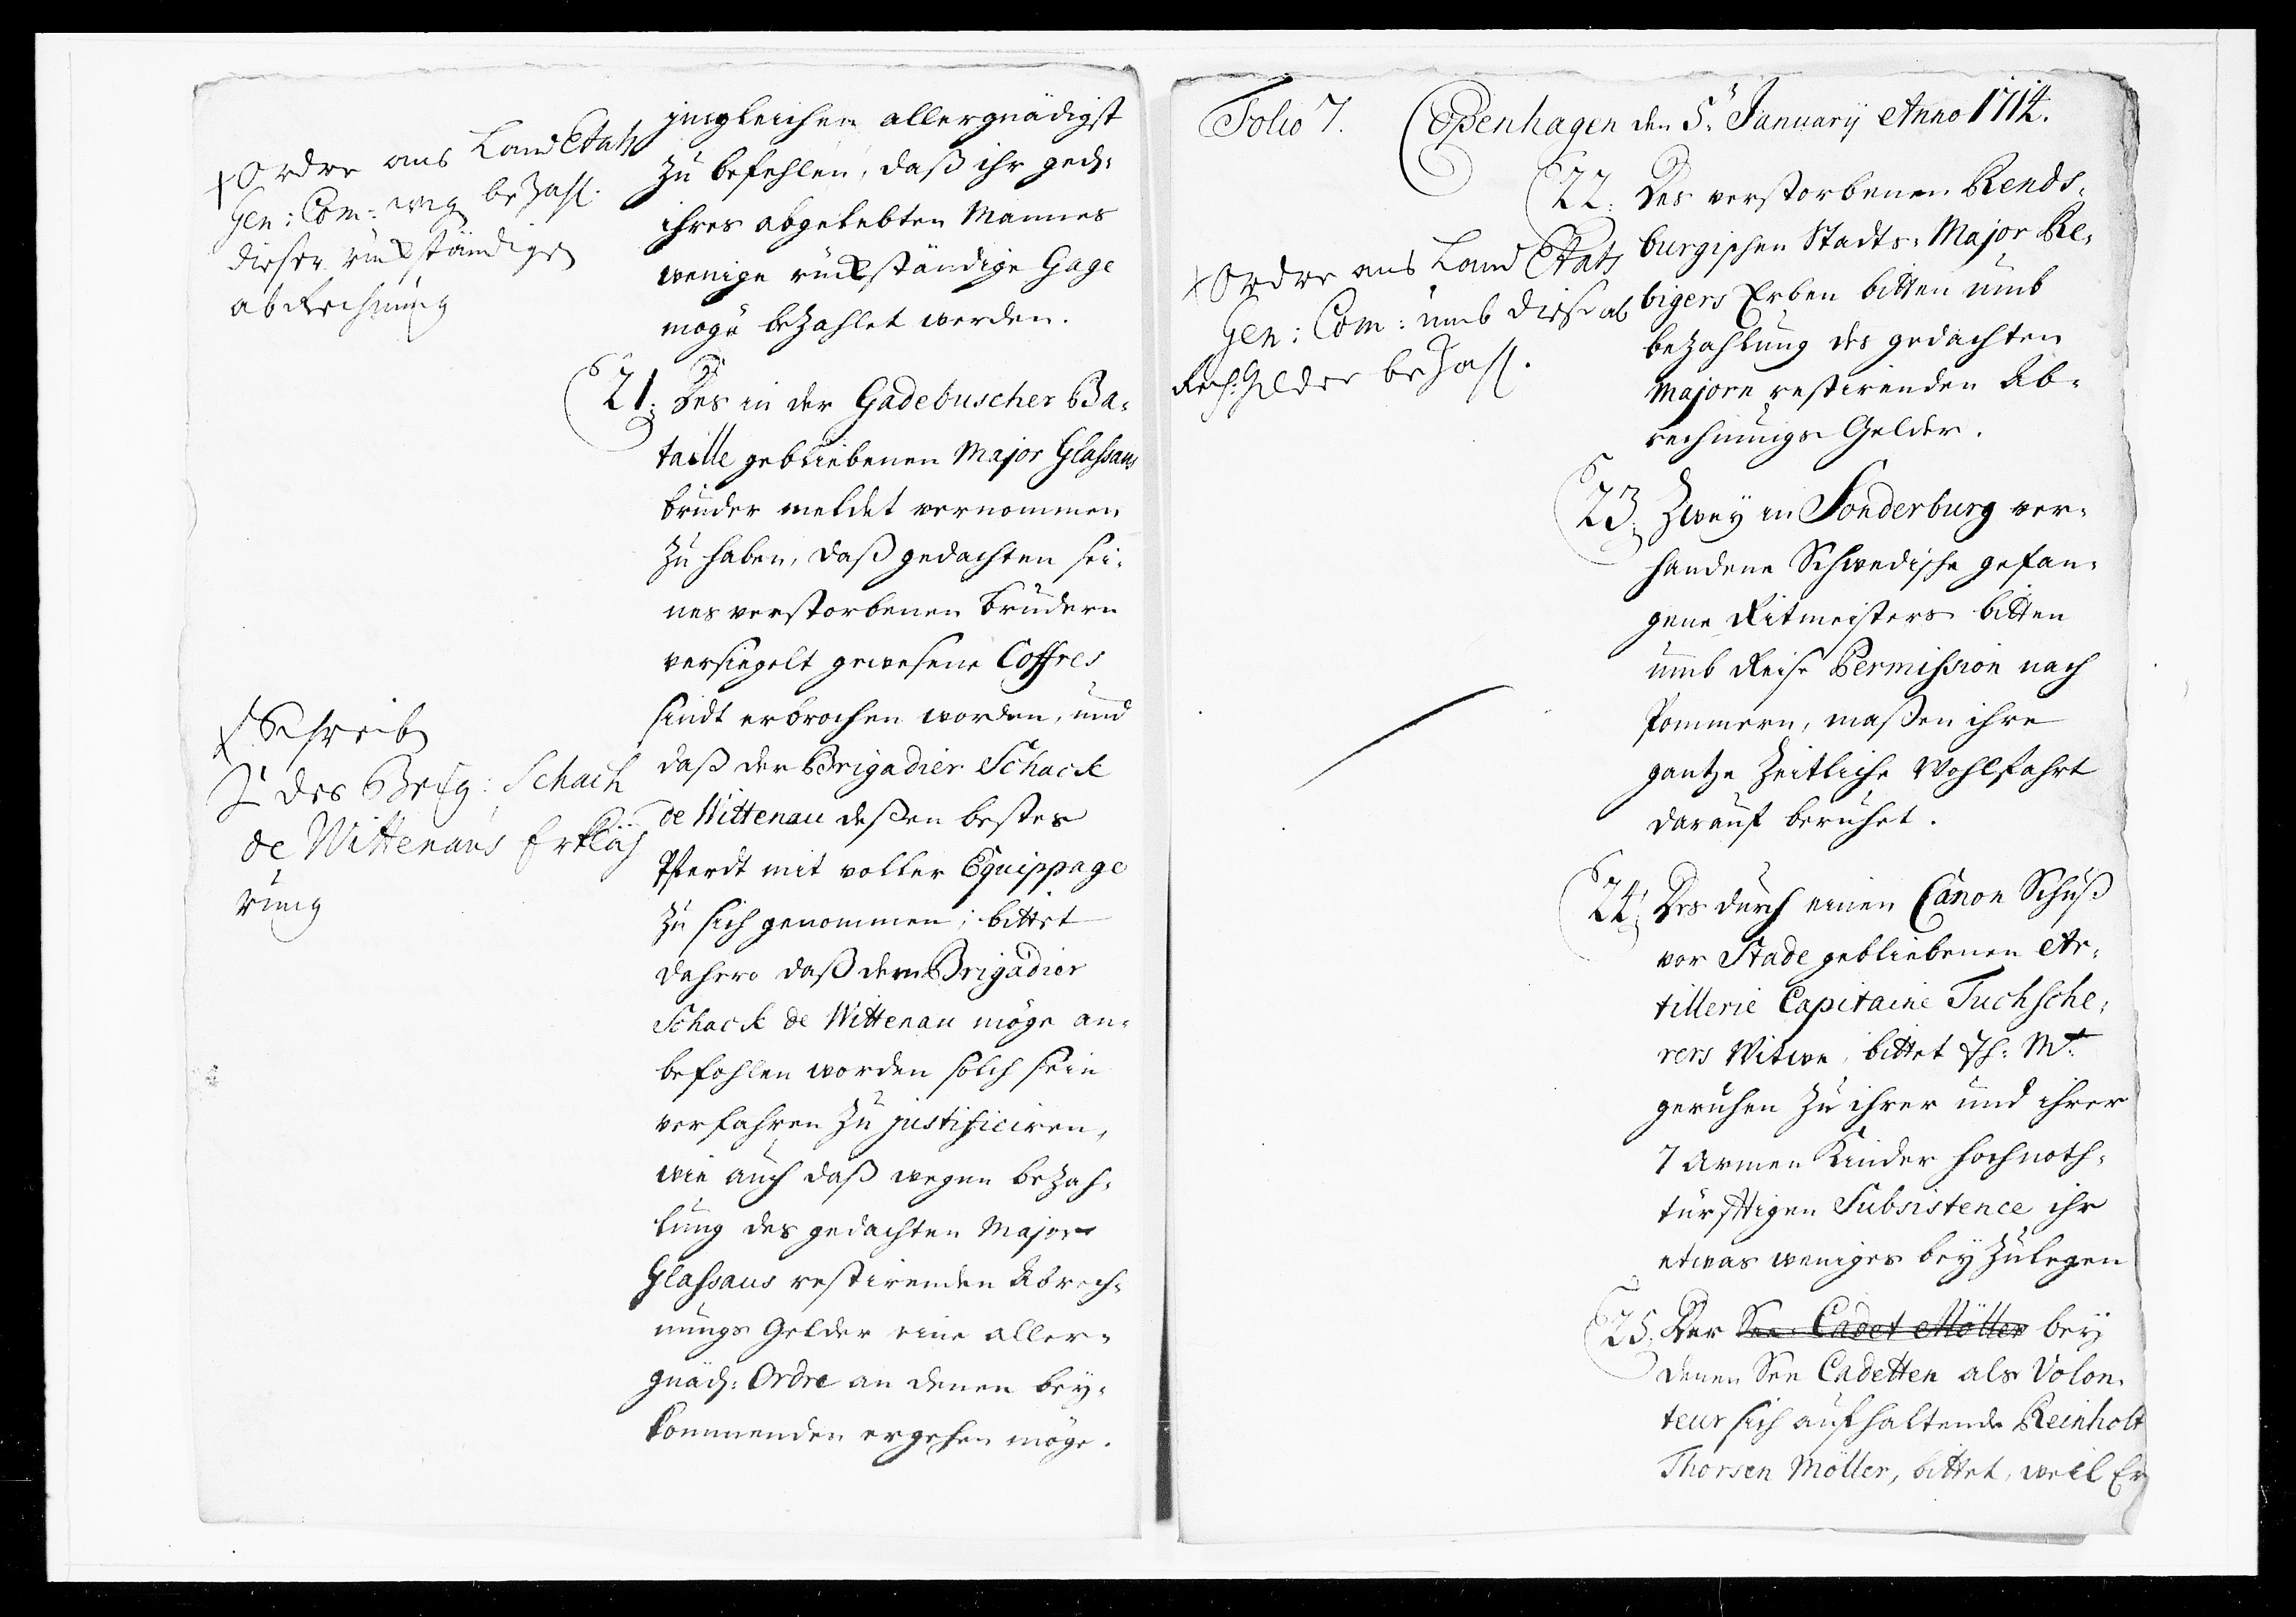 x Ordre ans Land Etats
Gen: Com: weg bezahl.
dieser rückständigen
abRechnung
jngleichen allergnädigst
zu befehlen, daß ihr gedʒ:
ihres abgelebten Mannes
wenige rückständige Gage
möge bezahlet werden.
21. Des in der Gadebuscher Ba-
taille gebliebenen Major Glassaus
bruder meldet vernommen
zu haben, daß gedachten sei-
nes verstorbenen brudern
versiegelt gewesene Coffres
sindt erbrochen worden, und
daß der Brigadier Schack
de Wittenau deßen bestes
Pferdt mit voller Equippage
zu sich genommen; bittet
dahero daß dem Brigadier
Schack de Wittenau möge an-
befohlen worden solch sein
verfahren zu justificiren,
wie auch daß wegen bezah-
lung des gedachten Major
Glassaus restirenden Abrech-
nungs Gelder eine aller-
gnädʒ: Ordre an denen bey-
kommenden ergehen möge.
x Schreib
des Brig: Schach
de Wittenaus Erklä-
rung
Folio 7. Copenhagen den 5. January Anno 1714.
22. Des verstorbenen Rends-
burgischen Stadts-Major Re-
bigers Erben bitten umb
bezahlung des gedachten
Majorn restirenden Ab-
rechnungs Gelder.
x Ordre ans Land Etats
Gen: Com: umb diese ab
Rech: Gelder bezahl.
23. Zwey in Sonderburg ver-
handene Schwedische gefan-
gene Ritmeisters bitten
umb Reise Permission nach
Pommern, maßen ihre
gantze zeitliche Wohlfahrt
darauf beruhet.
24. Des durch einen Canon Schuß
vor Stade gebliebenen Ar-
tillerie Capitaine Tuchsche-
rers Witwe, bittet Ih: Mt.
geruhen zu ihrer und ihrer
7 armen Kinder hochnoth-
türfftigen Subsistence ihr
etwas weniges bey zulegen
25. Der See Cadet Möller bey
denen See Cadetten als Volon-
teur sich aufhaltende Reinholt
Thorsen Möller, bittet, weil Er